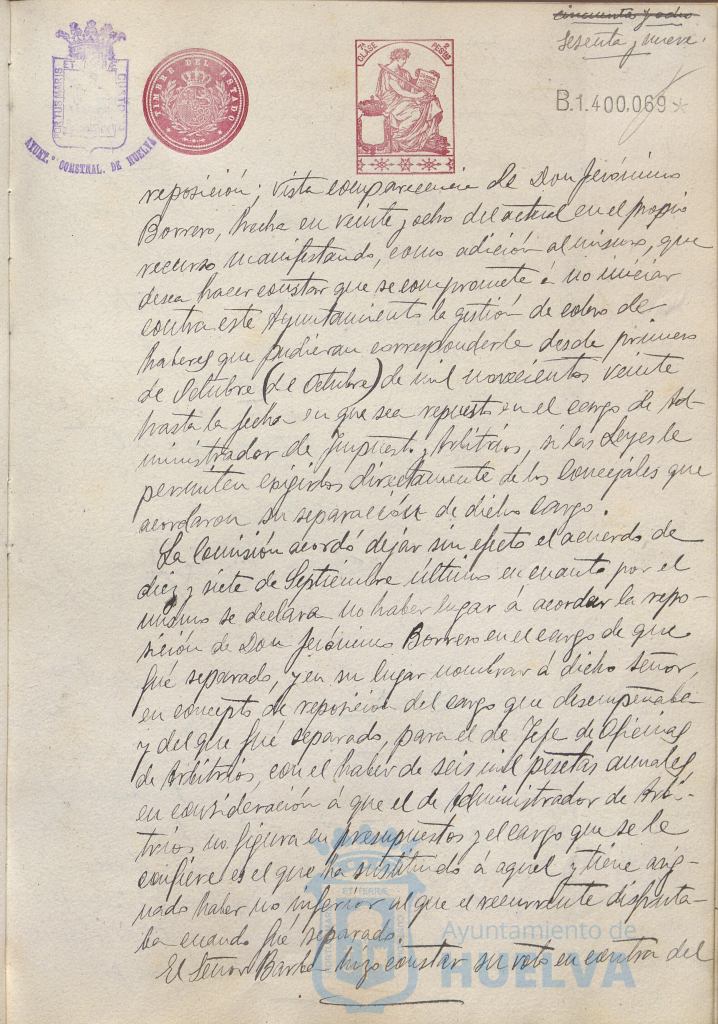 cincuenta y ocho
Sesenta y nueve.
7ª CLASE
2 PESTAS
TIMBRE DEL ESTADO
B.1.400,069
PORTUS MARIS ET TERRE CUSTODIA
AYUNT.º CONSTNAL. DE HUELVA
reposición; vista comparecencia de Don Jerónimo
Borrero, hecha en veinte y ocho del actual en el propio
recurso manifestando, como adición al mismo, que
desea hacer constar que se compromete á no iniciar
contra este Ayuntamiento la gestión de cobro de
haberes que pudieran corresponderle desde primero
de Octubre (de Octubre) de mil novecientos veinte
hasta la fecha en que sea repuesto en el cargo de Ad-
ministrador de Impuestos y Arbitrios, si las Leyes le
permiten exigirlos directamente de los Concejales que
acordaron su separación de dicho cargo.
La Comisión acordó dejar sin efecto el acuerdo de
diez y siete de Septiembre último en cuanto por el
mismo se declara no haber lugar á acordar la repo-
sición de Don Jerónimo Borrero en el cargo de que
fué separado, y en su lugar nombrar á dicho señor,
en concepto de reposición del cargo que desempeñaba
y del que fué separado, para el de Jefe de Oficinas
de Arbitrios, con el haber de seis mil pesetas anuales
en consideración á que el de Administrador de Arbi-
trios no figura en presupuestos y el cargo que se le
confiere es el que ha sustituido á aquel y tiene asig-
nado haber no inferior al que el recurrente disfruta-
ba cuando fué separado.
El Señor Barba hizo constar su voto en contra del
Ayuntamiento de
HUELVA